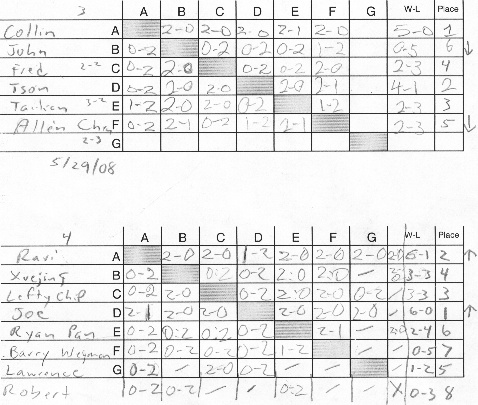 3 A B C D E F G W-L Place
Collin A 2-0 2-0 2-0 2-1 2-0 5-0 1
John B 0-2 0-2 0-2 0-2 1-2 0-5 6 ↓
Fred 2-2 C 0-2 2-0 0-2 0-2 2-0 2-3 4
Json D 0-2 2-0 2-0 2-0 2-1 4-1 2
3-2 E 1-2 2-0 2-0 0-2 1-2 2-3 3
Allen F 0-2 2-1 0-2 1-2 2-1 2-3 5 ↓
2-3 G
5/29/08
4 A B C D E F G W-L Place
Ravi A 2-0 2-0 1-2 2-0 2-0 2-0 2-0 6-1 2 ↑
Xuejing B 0-2 0:2 0-2 2:0 2:0 / 3-3 4
Lefty Chip C 0-2 2-0 0-2 2:0 2-0 0-2 / 3-3 3
Joe D 2-1 2-0 2-0 2-0 2-0 2-0 / 6-0 1 ↑
Ryan Pan E 0-2 0:2 0:2 0-2 2-1 / 2:0 2-4 6
Barry F 0-2 0-2 0-2 0-2 1-2 0-5 7
Lawrence G 0-2 / 2-0 0-2 / 1-2 5
Robert 0-2 0-2 / / 0-2 X 0-3 8